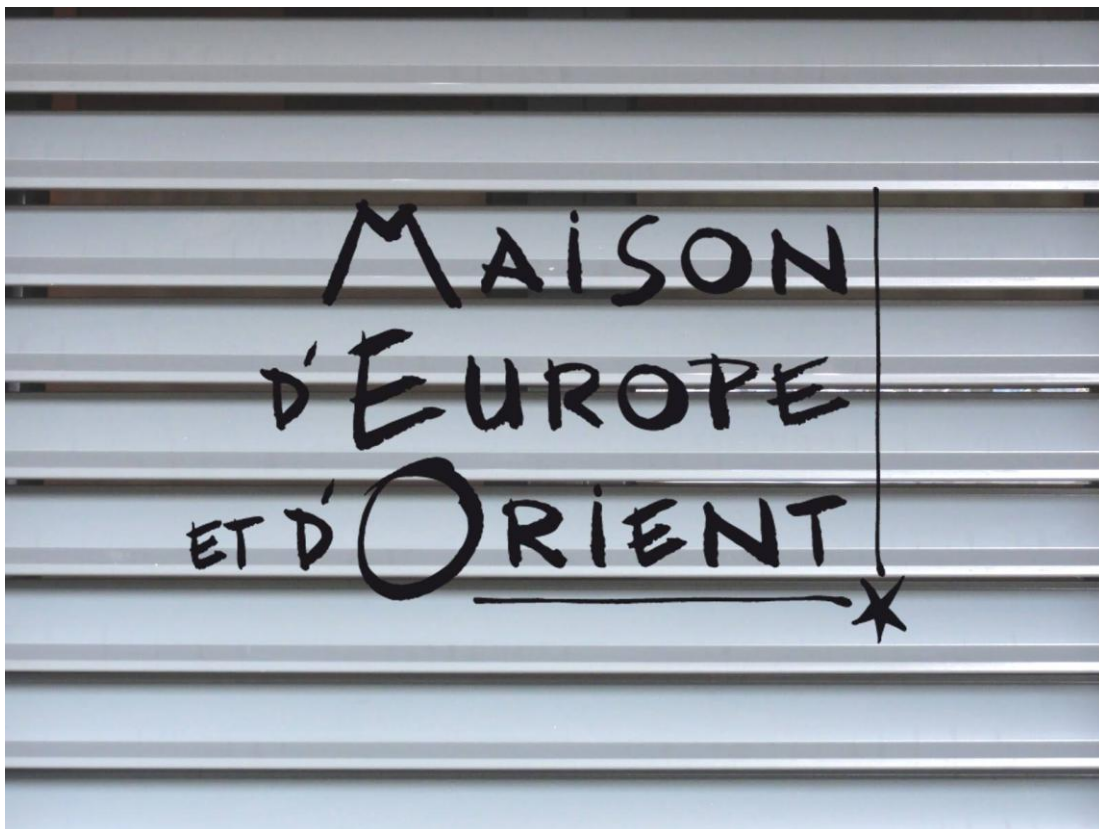 MAiSON
D'EUROPE
ET D'ORiENT